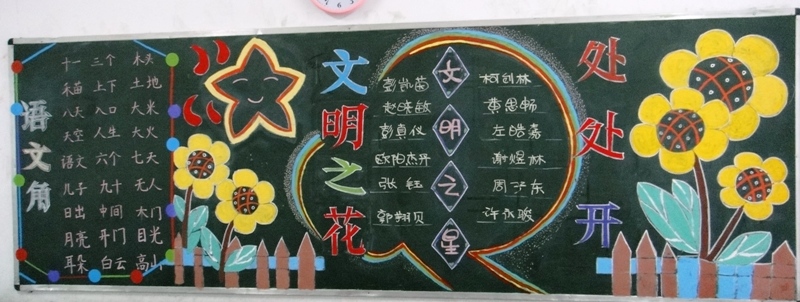 语文角
十一 三个 木头
禾苗 上下 土地
八天 入口 大米
天空 人生 大火
语文 六个 七天
儿子 九十 无人
日出 中间 木门
月亮 开门 目光
耳朵 白云 高山
文明之花
文明之星
彭凯茵
赵晓敏
彭真仪
欧阳杰开
张钰
郭翔贝
柯剑林
黄思畅
左皓嘉
谢煜林
周子东
处处开